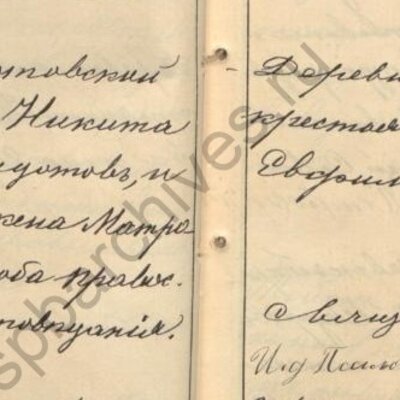 отовской
Никита
едотовъ, и
жена Матро
оба правос.
повѣданія.
Деревн
крестья
Евфим
священ
И. д. Псало
spbarchives.ru